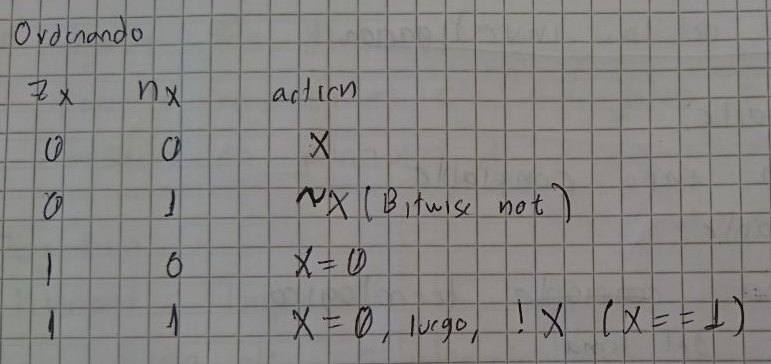 Ordenando
zx nx action
0 0 X
0 1 ~X (Bitwise not)
1 0 X=0
1 1 X=0, luego, !X (X==1)